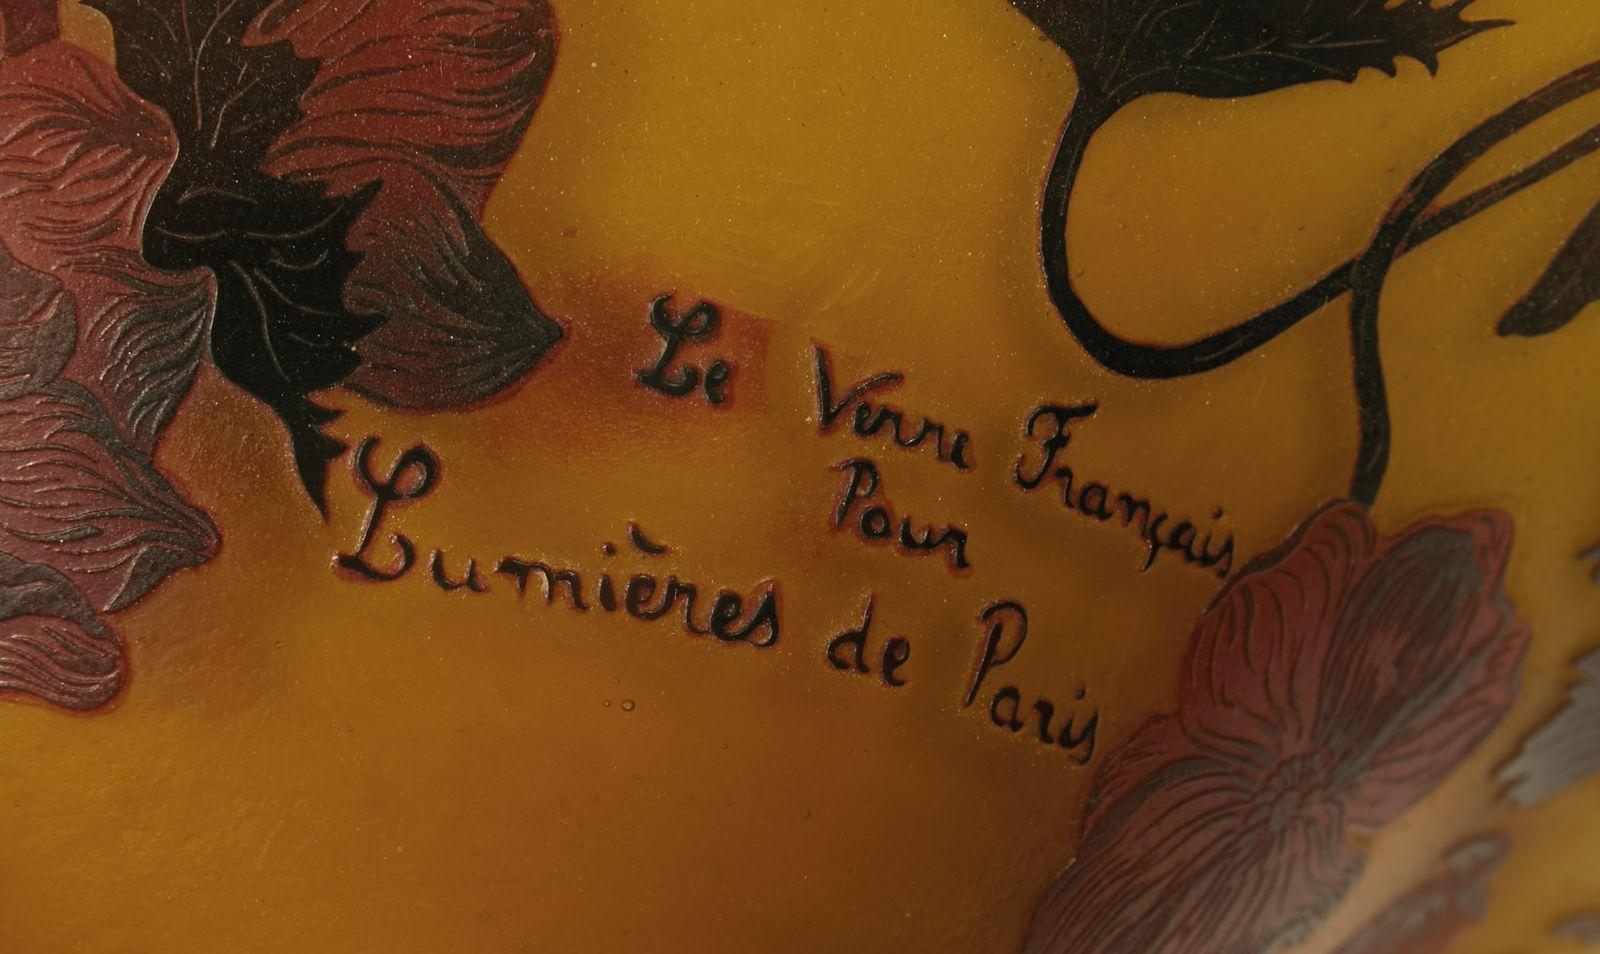 Le Verre Français
Pour
Lumières de Paris